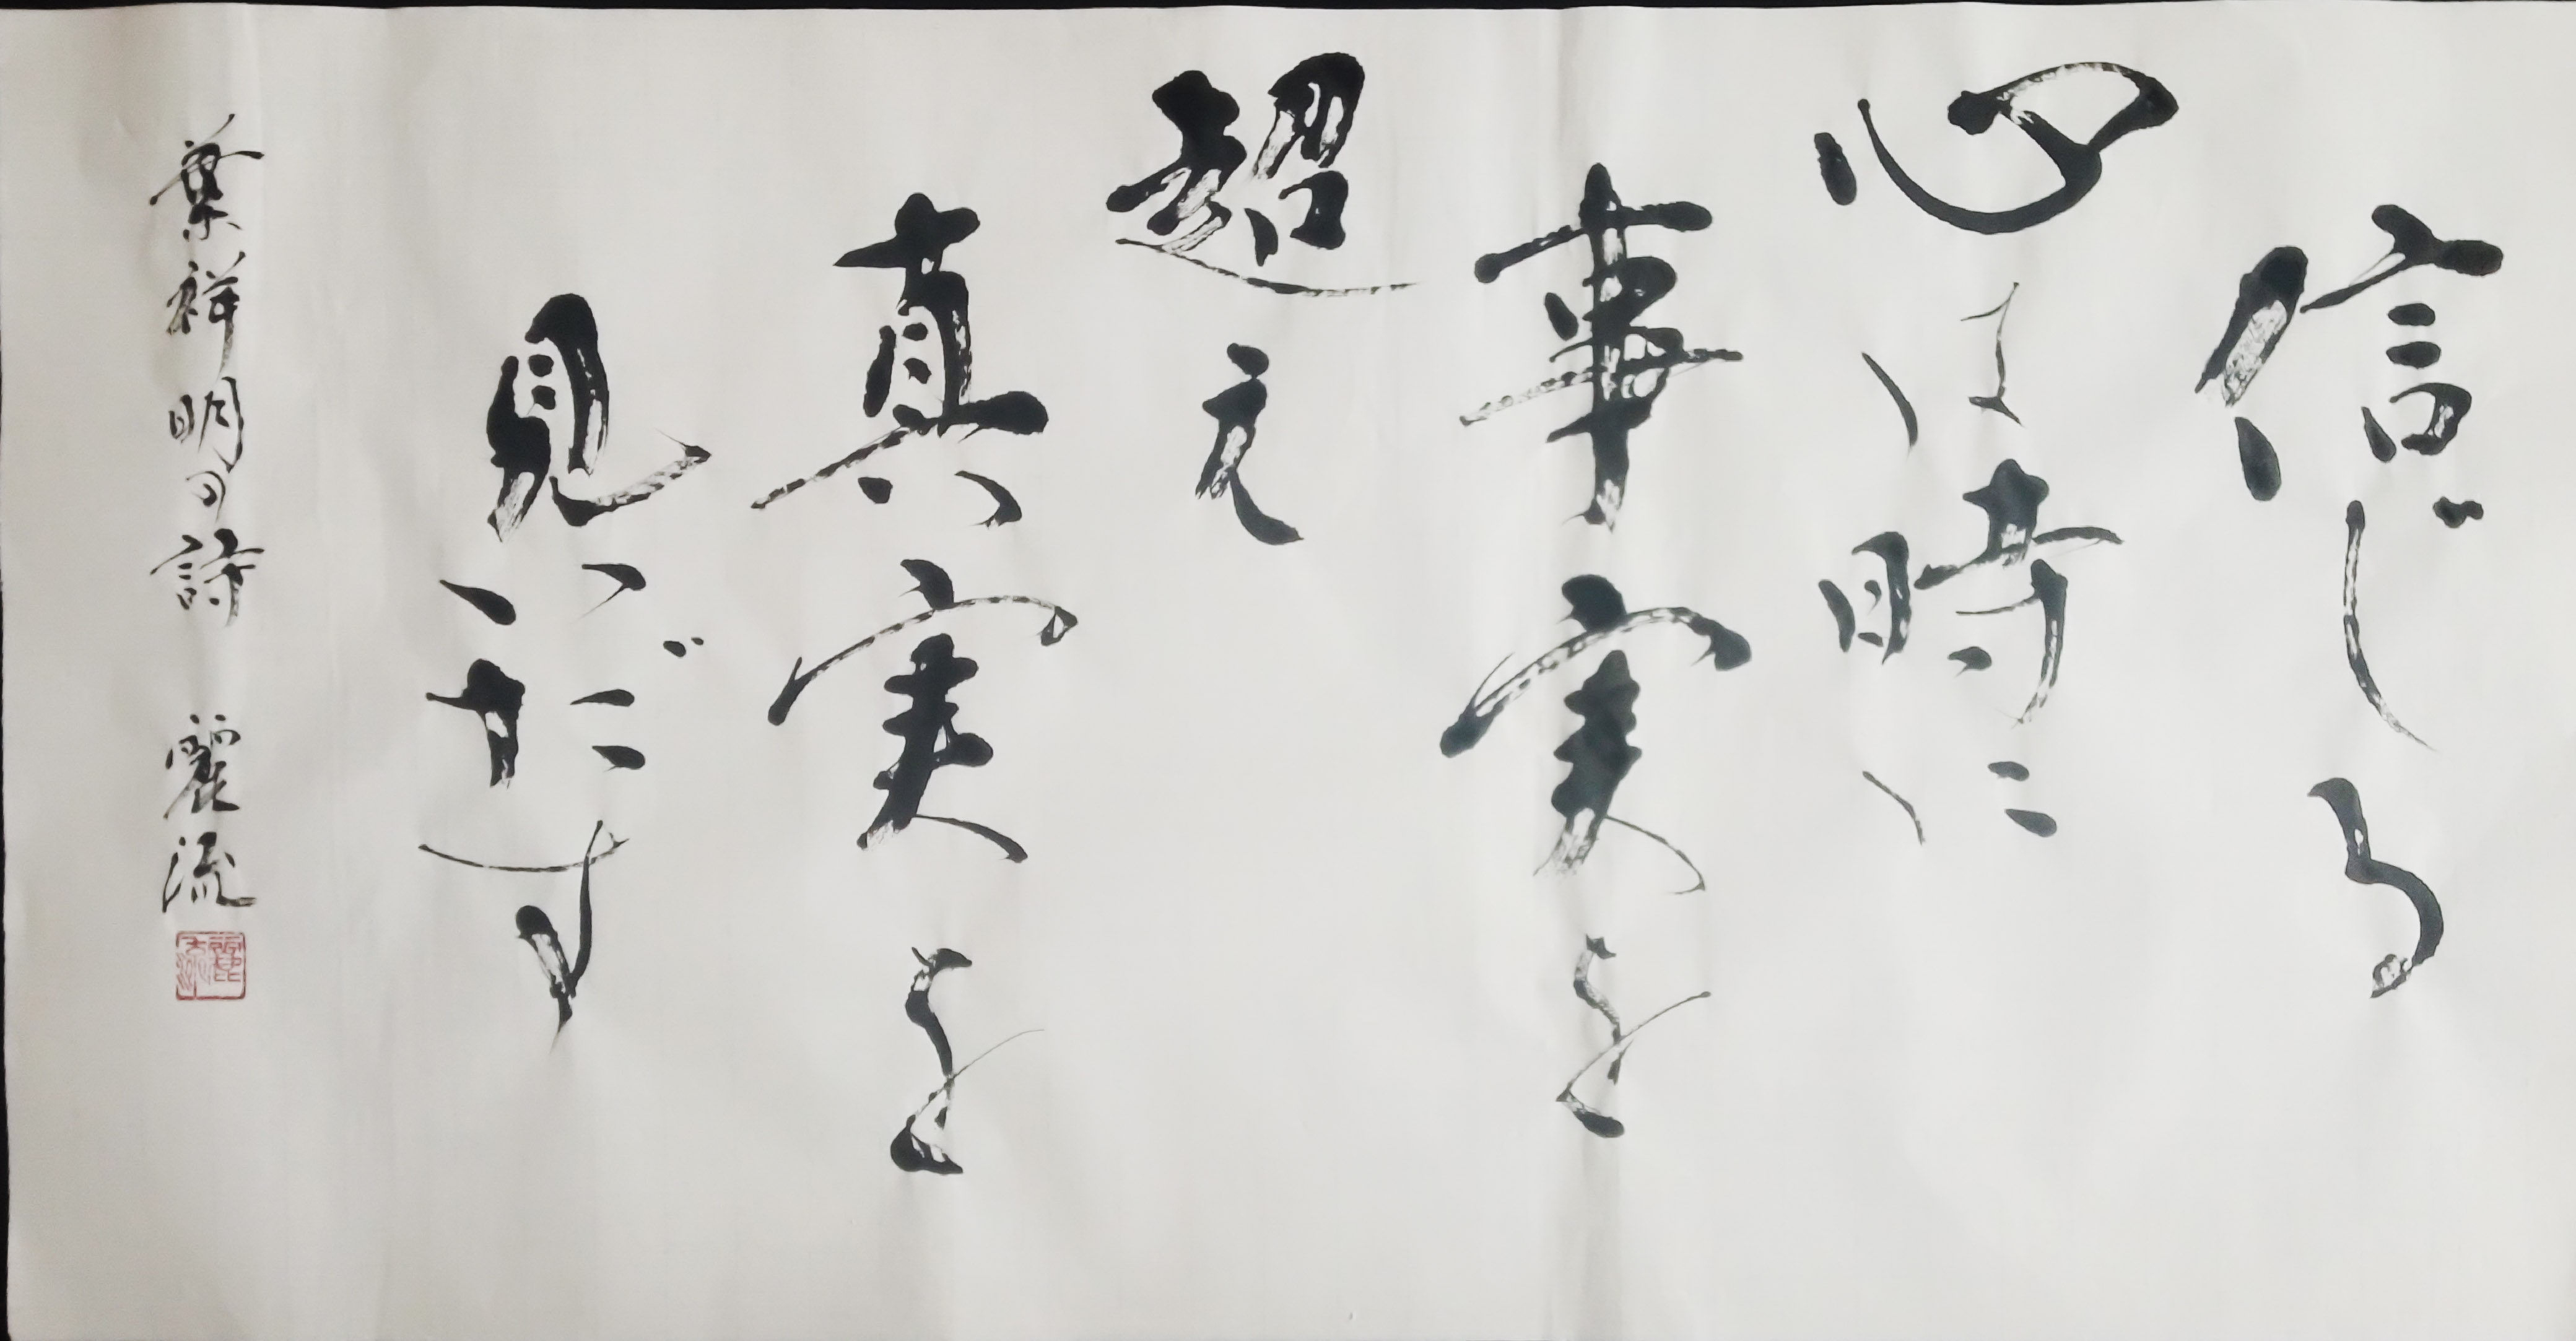 信じる
心は時に
事実を
超え
真実を
見いだす
葉祥明の詩 麗流
麗流